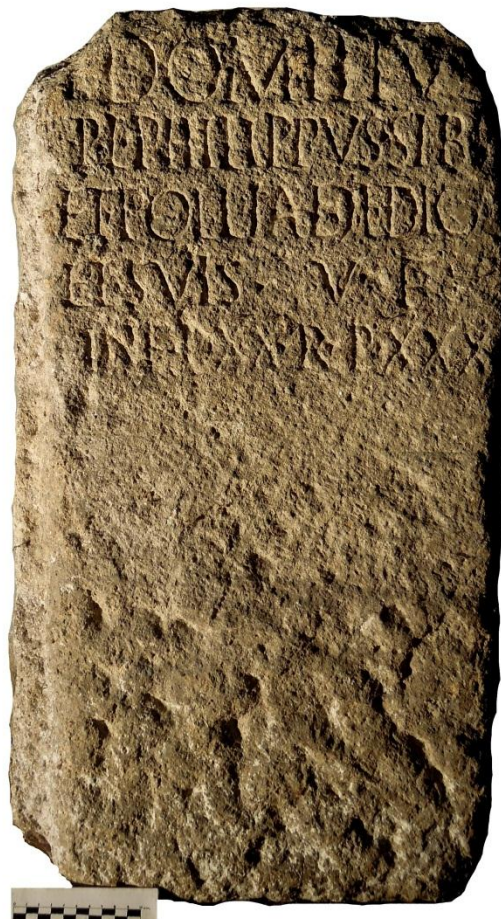 L DOMITIV
P L PHILIPPVS SIB
ET POLLIA DEDIC
ET SVIS · V · F ·
IN F P XX · R · P · XXX